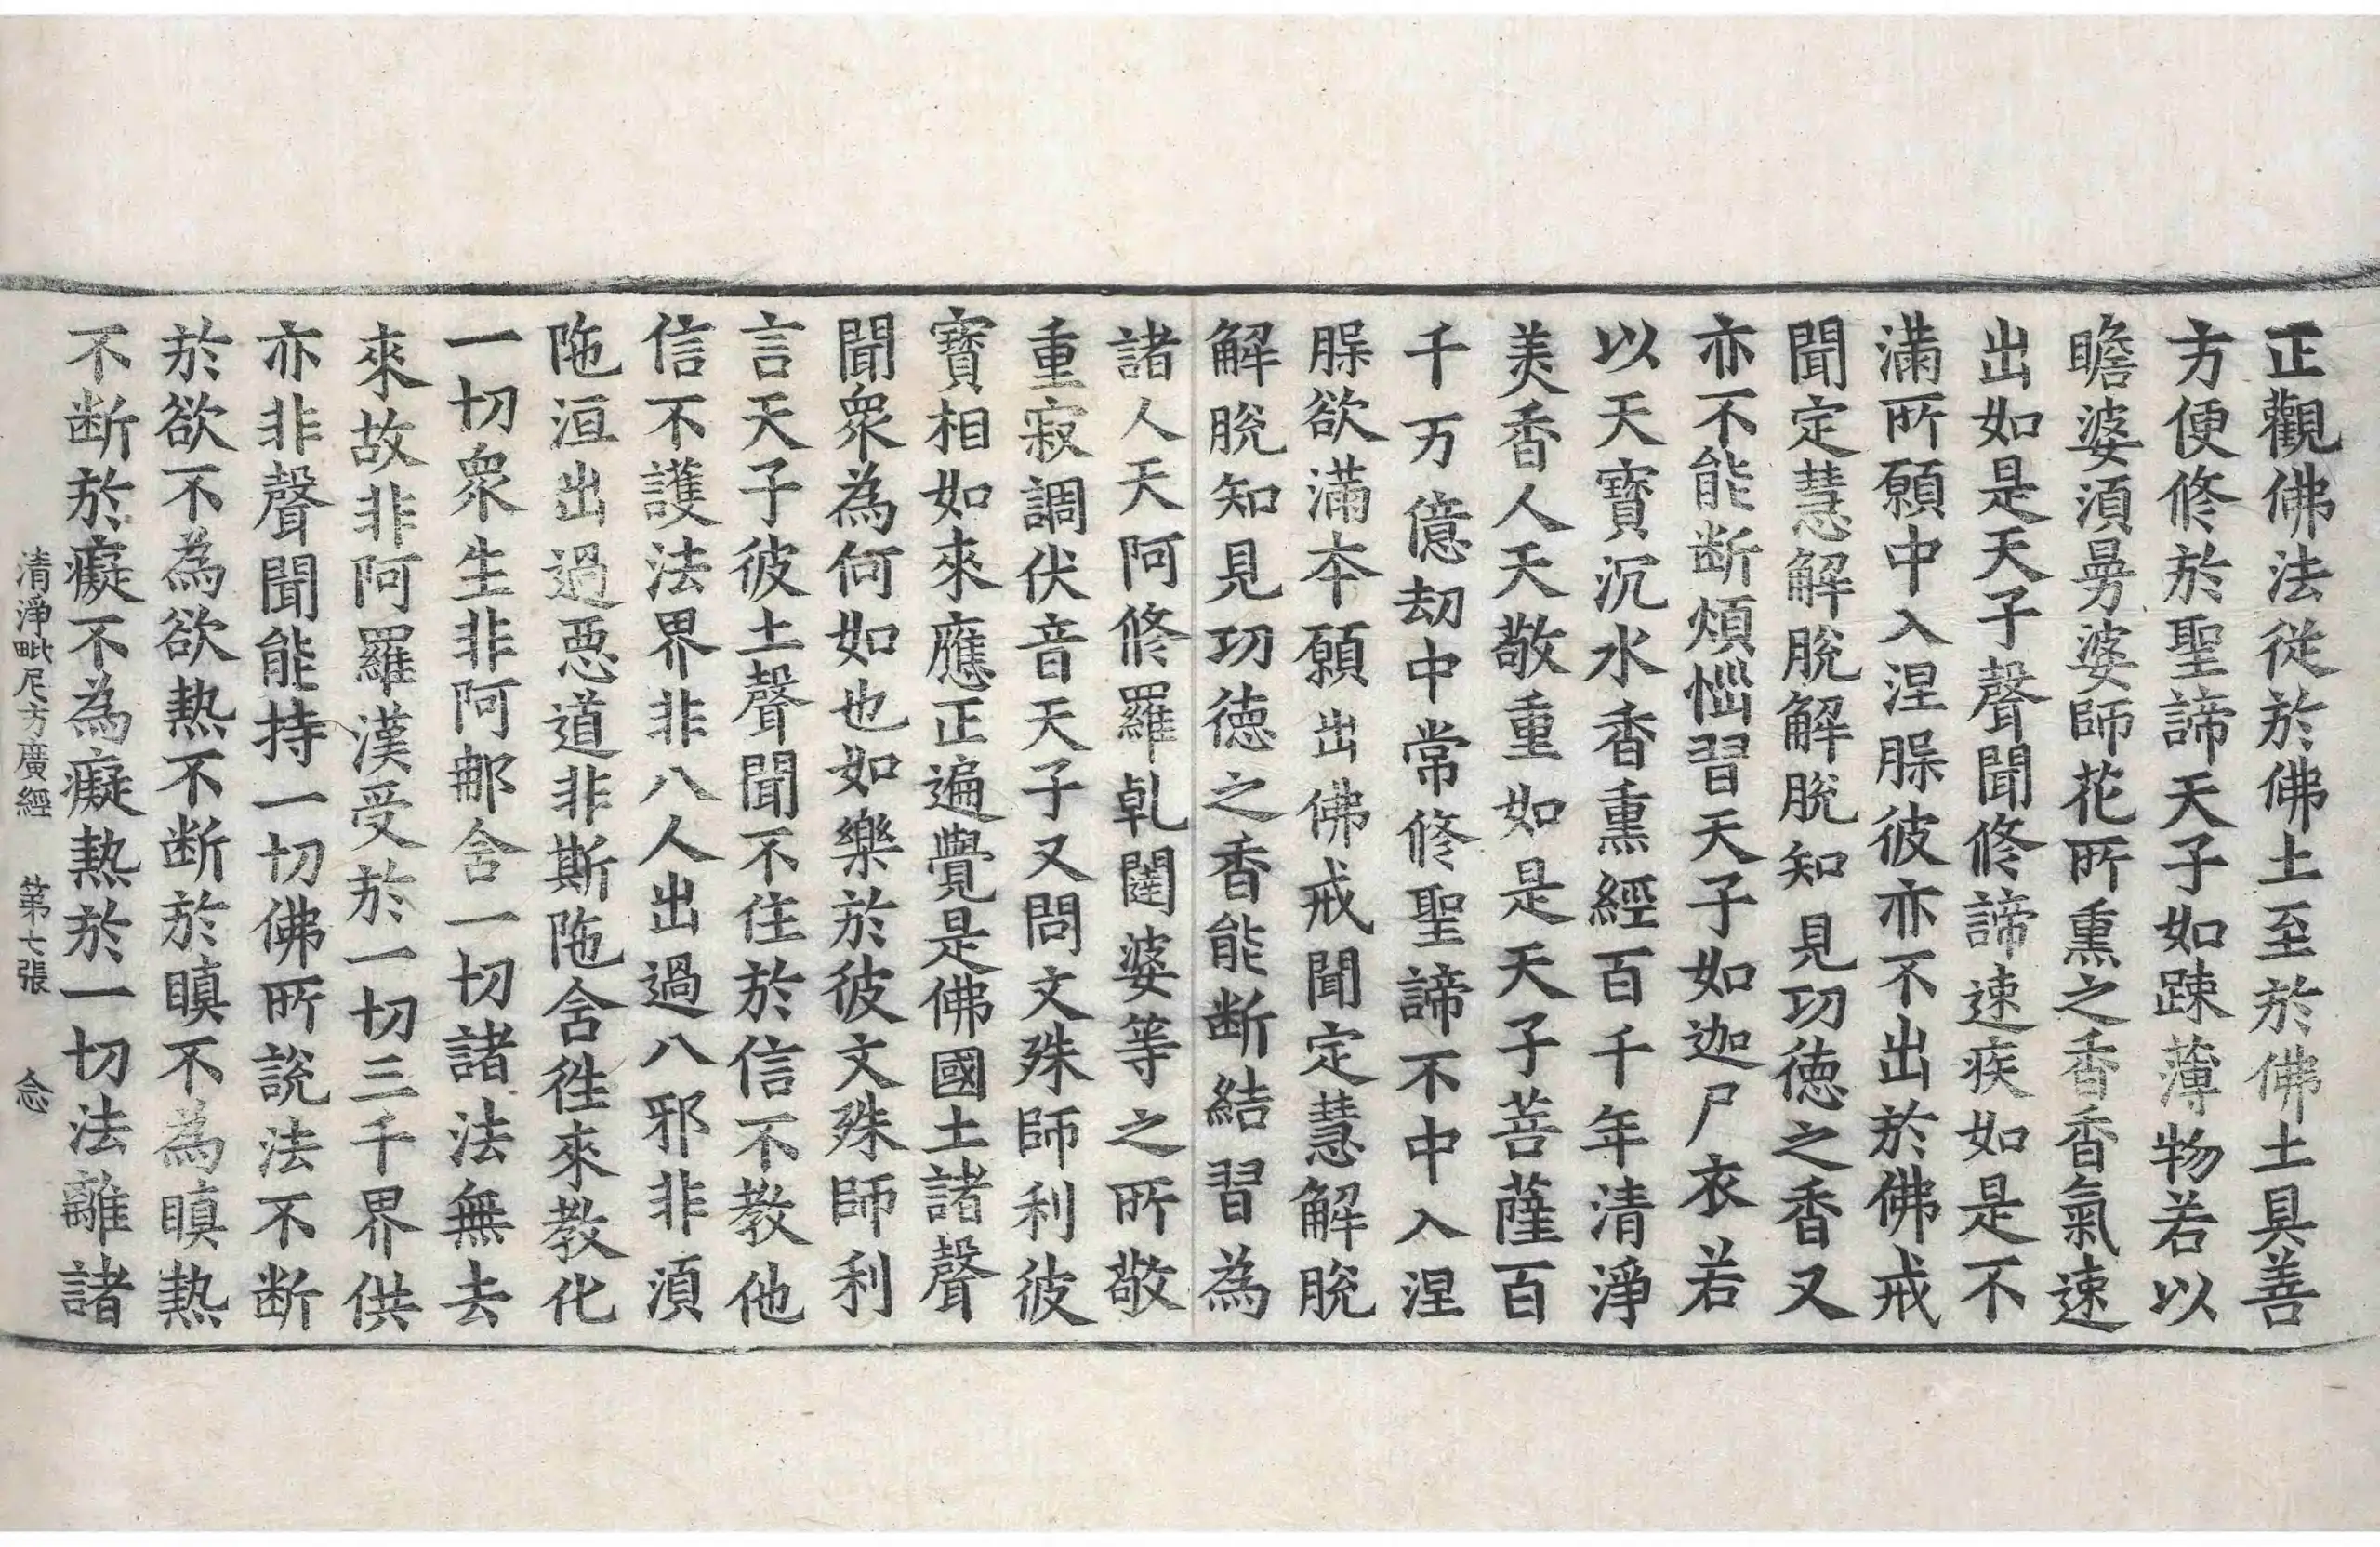 正觀佛法從於佛土至於佛土具善
方便修於聖諦天子如踈薄物若以
瞻婆湏曼婆師花所熏之香香氣速
出如是天子聲聞修諦速疾如是不
滿所願中入涅腜彼亦不出於佛戒
聞定慧解脫解脫知見功德之香又
亦不能断煩惱習天子如迦尸衣若
以天寶沉水香熏經百千年清淨
美香人天敬重如是天子菩薩百
千万億劫中常修聖諦不中入涅
腜欲滿本願出佛戒聞定慧解脫
解脫知見功德之香能断結習為
諸人天阿修羅乹闥婆等之所敬
重寂調伏音天子又問文殊師利彼
寶相如來應正遍覺是佛國土諸聲
聞衆為何如也如樂於彼文殊師利
言天子彼土聲聞不住於信不教他
信不護法界非八人出過八邪非湏
陁洹出過惡道非斯陁含徃來教化
一切衆生非阿那含一切諸法無去
來故非阿羅漢受於一切三千界供
亦非聲聞能持一切佛所說法不断
於欲不為欲熱不断於瞋不為瞋熱
不断於癡不為癡熱於一切法離諸
清淨毗尼方廣經 第七張 念